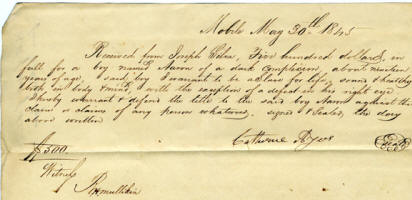 Mobile May 30th 1843
Received from Joseph Five hundred dollars, in
full for a boy named Aaron of a dark Complexion about nineteen
years of age, I said boy I warrant to be a Slave for life, sound & healthy
both in body & mind, with the exception of a defect in his right eye
I hereby warrant & defend the title to the said boy Aaron against the
claim or claims of any person whatsoever. signed & Sealed, the day
above written
Catherine
Seal
$500
Witness